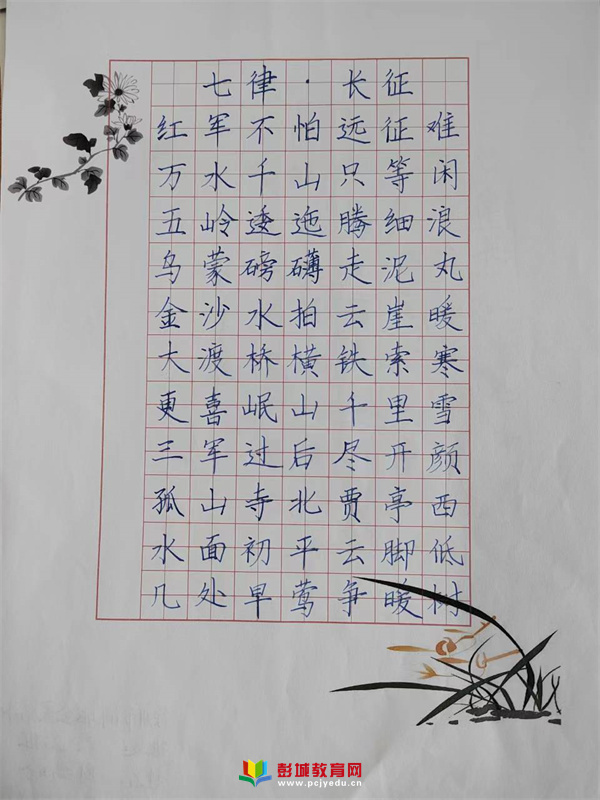 七律·长征
红军不怕远征难
万水千山只等闲
五岭逶迤腾细浪
乌蒙磅礴走泥丸
金沙水拍云崖暖
大渡桥横铁索寒
更喜岷山千里雪
三军过后尽开颜
孤山寺北贾亭西
水面初平云脚低
几处早莺争暖树
彭城教育网
www.pcjyedu.cn